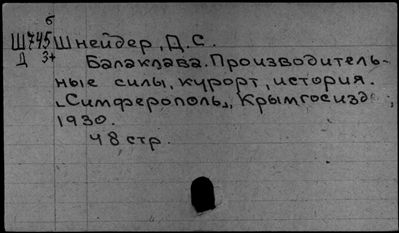 б
Ш745 Шнейдер, Д.С.
Д 3+ Балаклава. Производитель-
ные силы, курорт, история.
[Симферополь], Крымгосизд
1930.
48 стр.